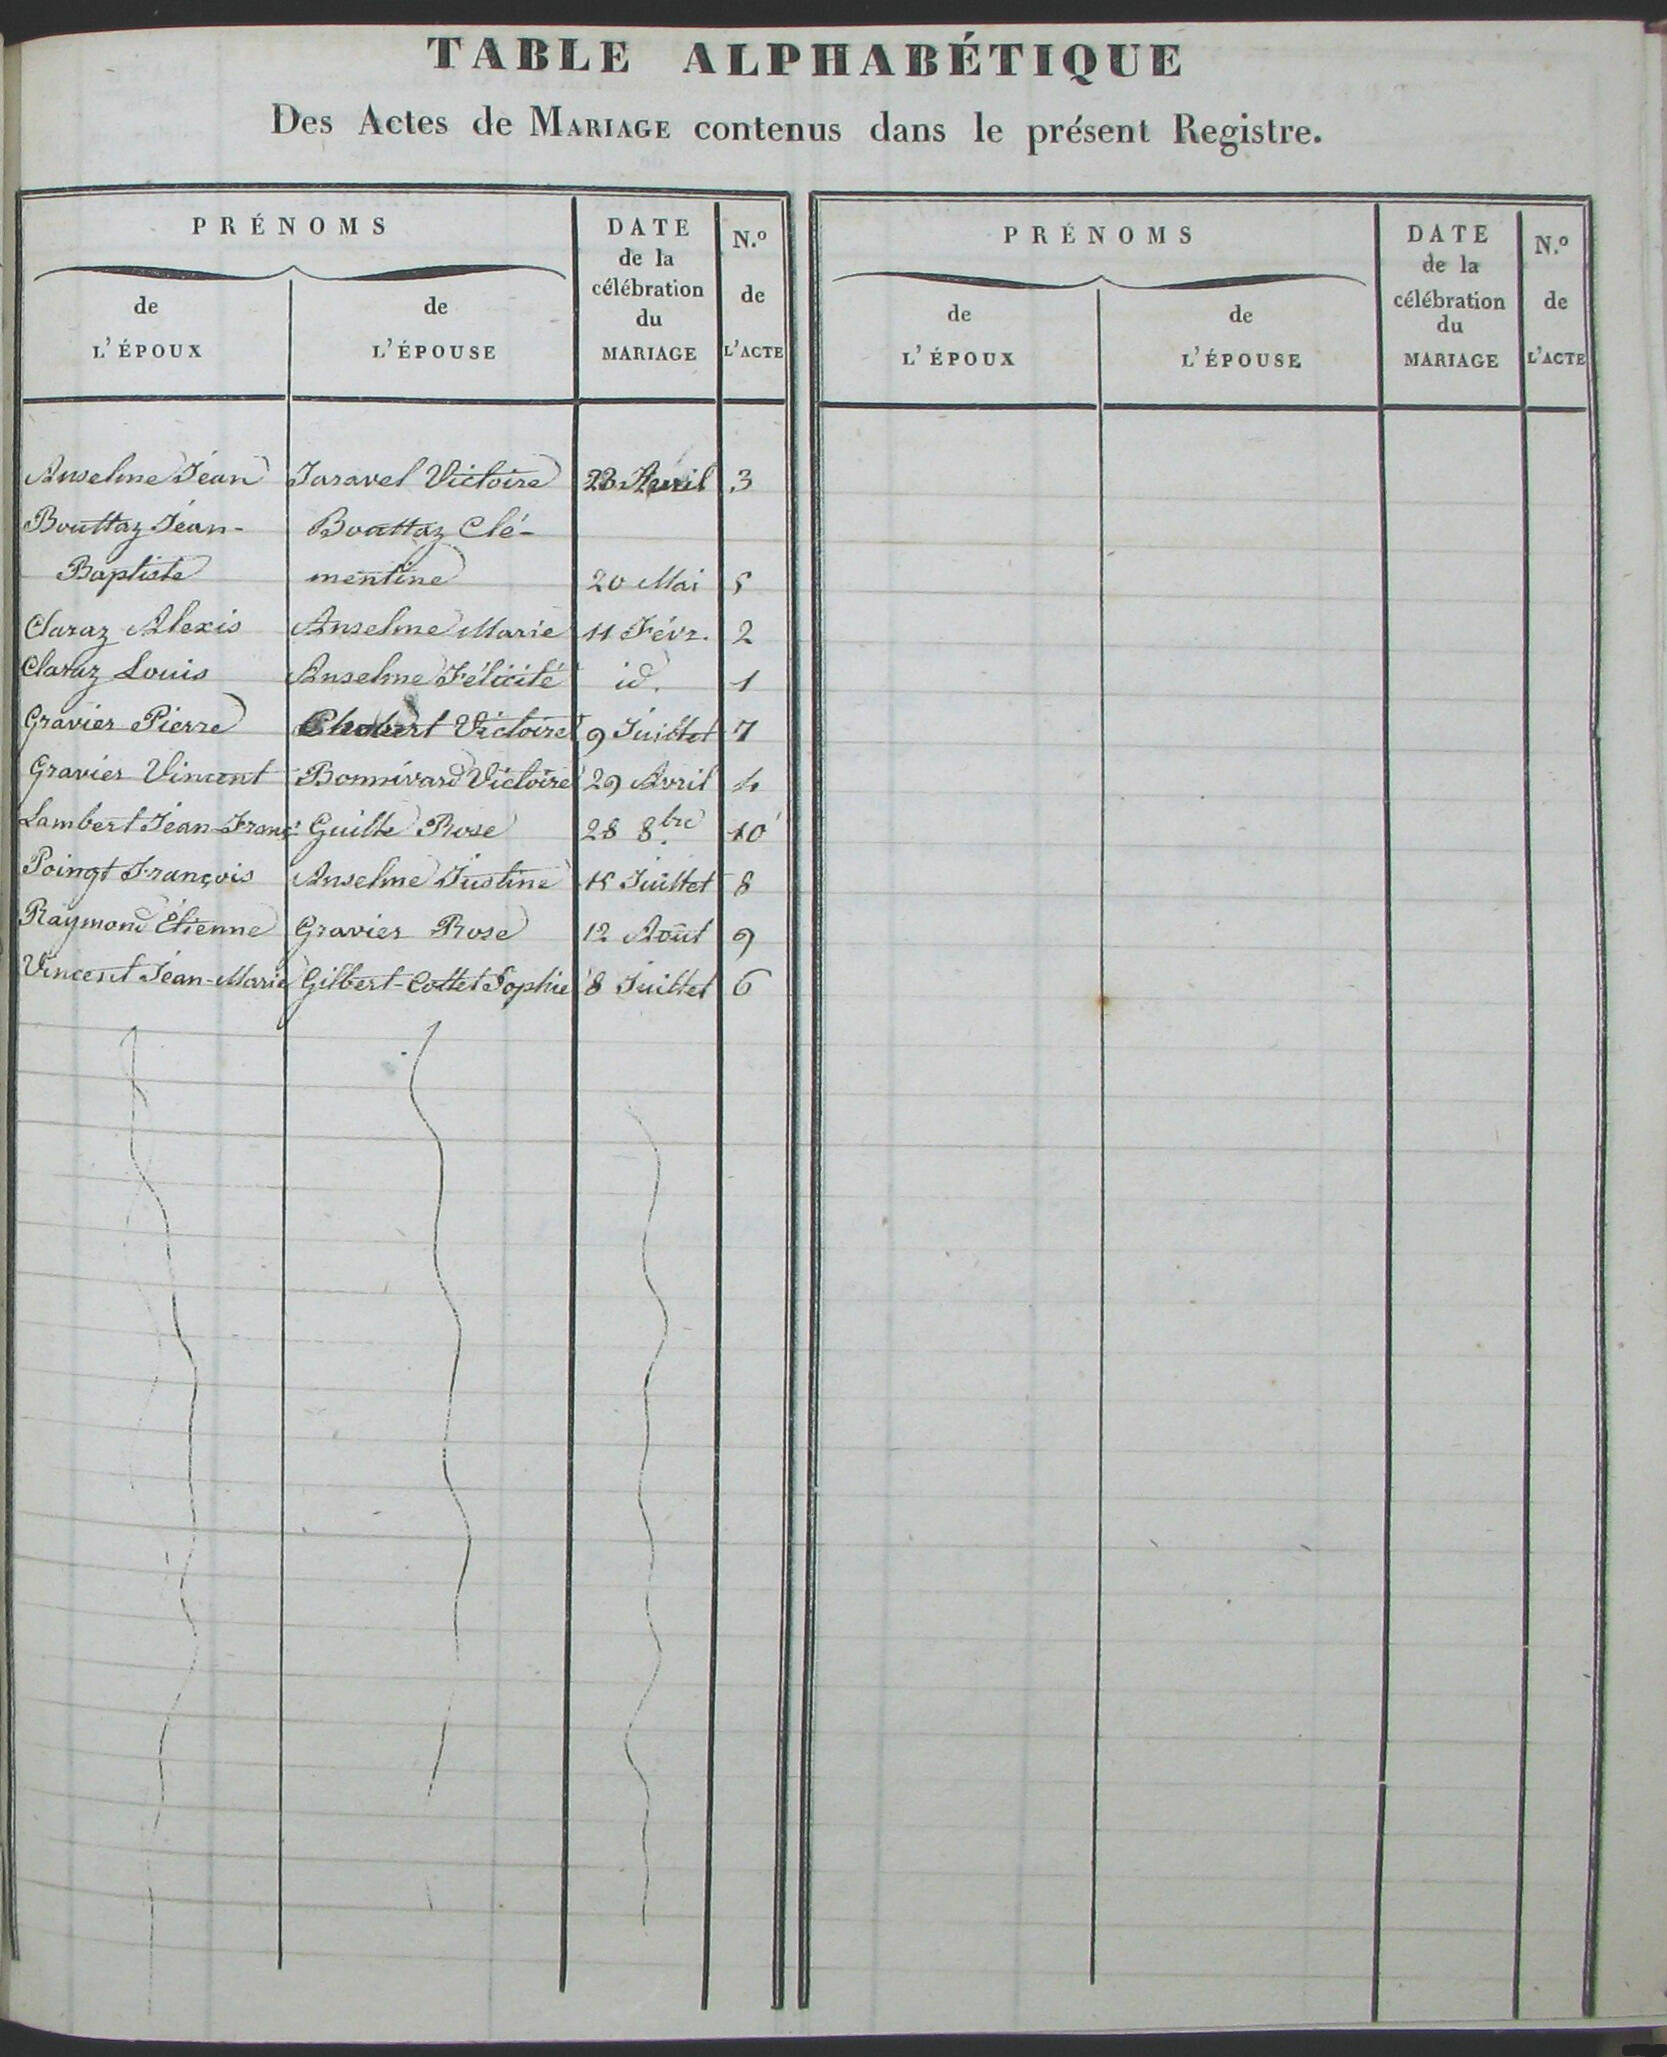 TABLE ALPHABÉTIQUE
Des Actes de MARIAGE contenus dans le présent Registre.
PRÉNOMS
de L'ÉPOUX
de L'ÉPOUSE
DATE de la célébration du MARIAGE
N.º de L'ACTE
PRÉNOMS
de L'ÉPOUX
de L'ÉPOUSE
DATE de la célébration du MARIAGE
N.º de L'ACTE
Anselme Jean Jaravel Victoire 23 Avril 3
Bouttaz Jean- Bouttaz Clé-
Baptiste mentine 20 Mai 5
Claraz Alexis Anselme Marie 11 Févr. 2
Claraz Louis Anselme Félicité id. 1
Gravier Pierre Chabert Victoire 9 Juillet 7
Gravier Vincent Bonnivard Victoire 29 Avril 4
Lambert Jean-Franç. Guille Rose 28 8.bre 10
Poingt François Anselme Justine 15 Juillet 8
Raymond Étienne Gravier Rose 12 Août 9
Vincent Jean-Marie Gilbert-Collet Sophie 8 Juillet 6